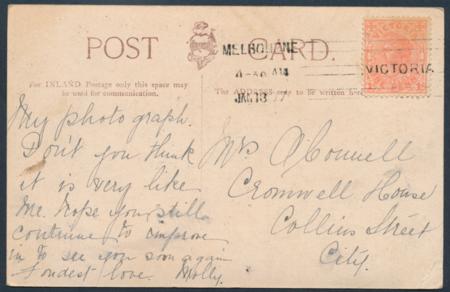 POST CARD.
MELBOURNE
VICTORIA
JAN 18
VICTORIA
For INLAND Postage only this space may
be used for communication.
The ADDRESS only to be written here
My photograph.
Don't you think
it is very like
me. hope you still
continue to improve
in to see you soon again
Fondest love. Molly.
Mrs O'Connell
Cromwell House
Collins Street
City.